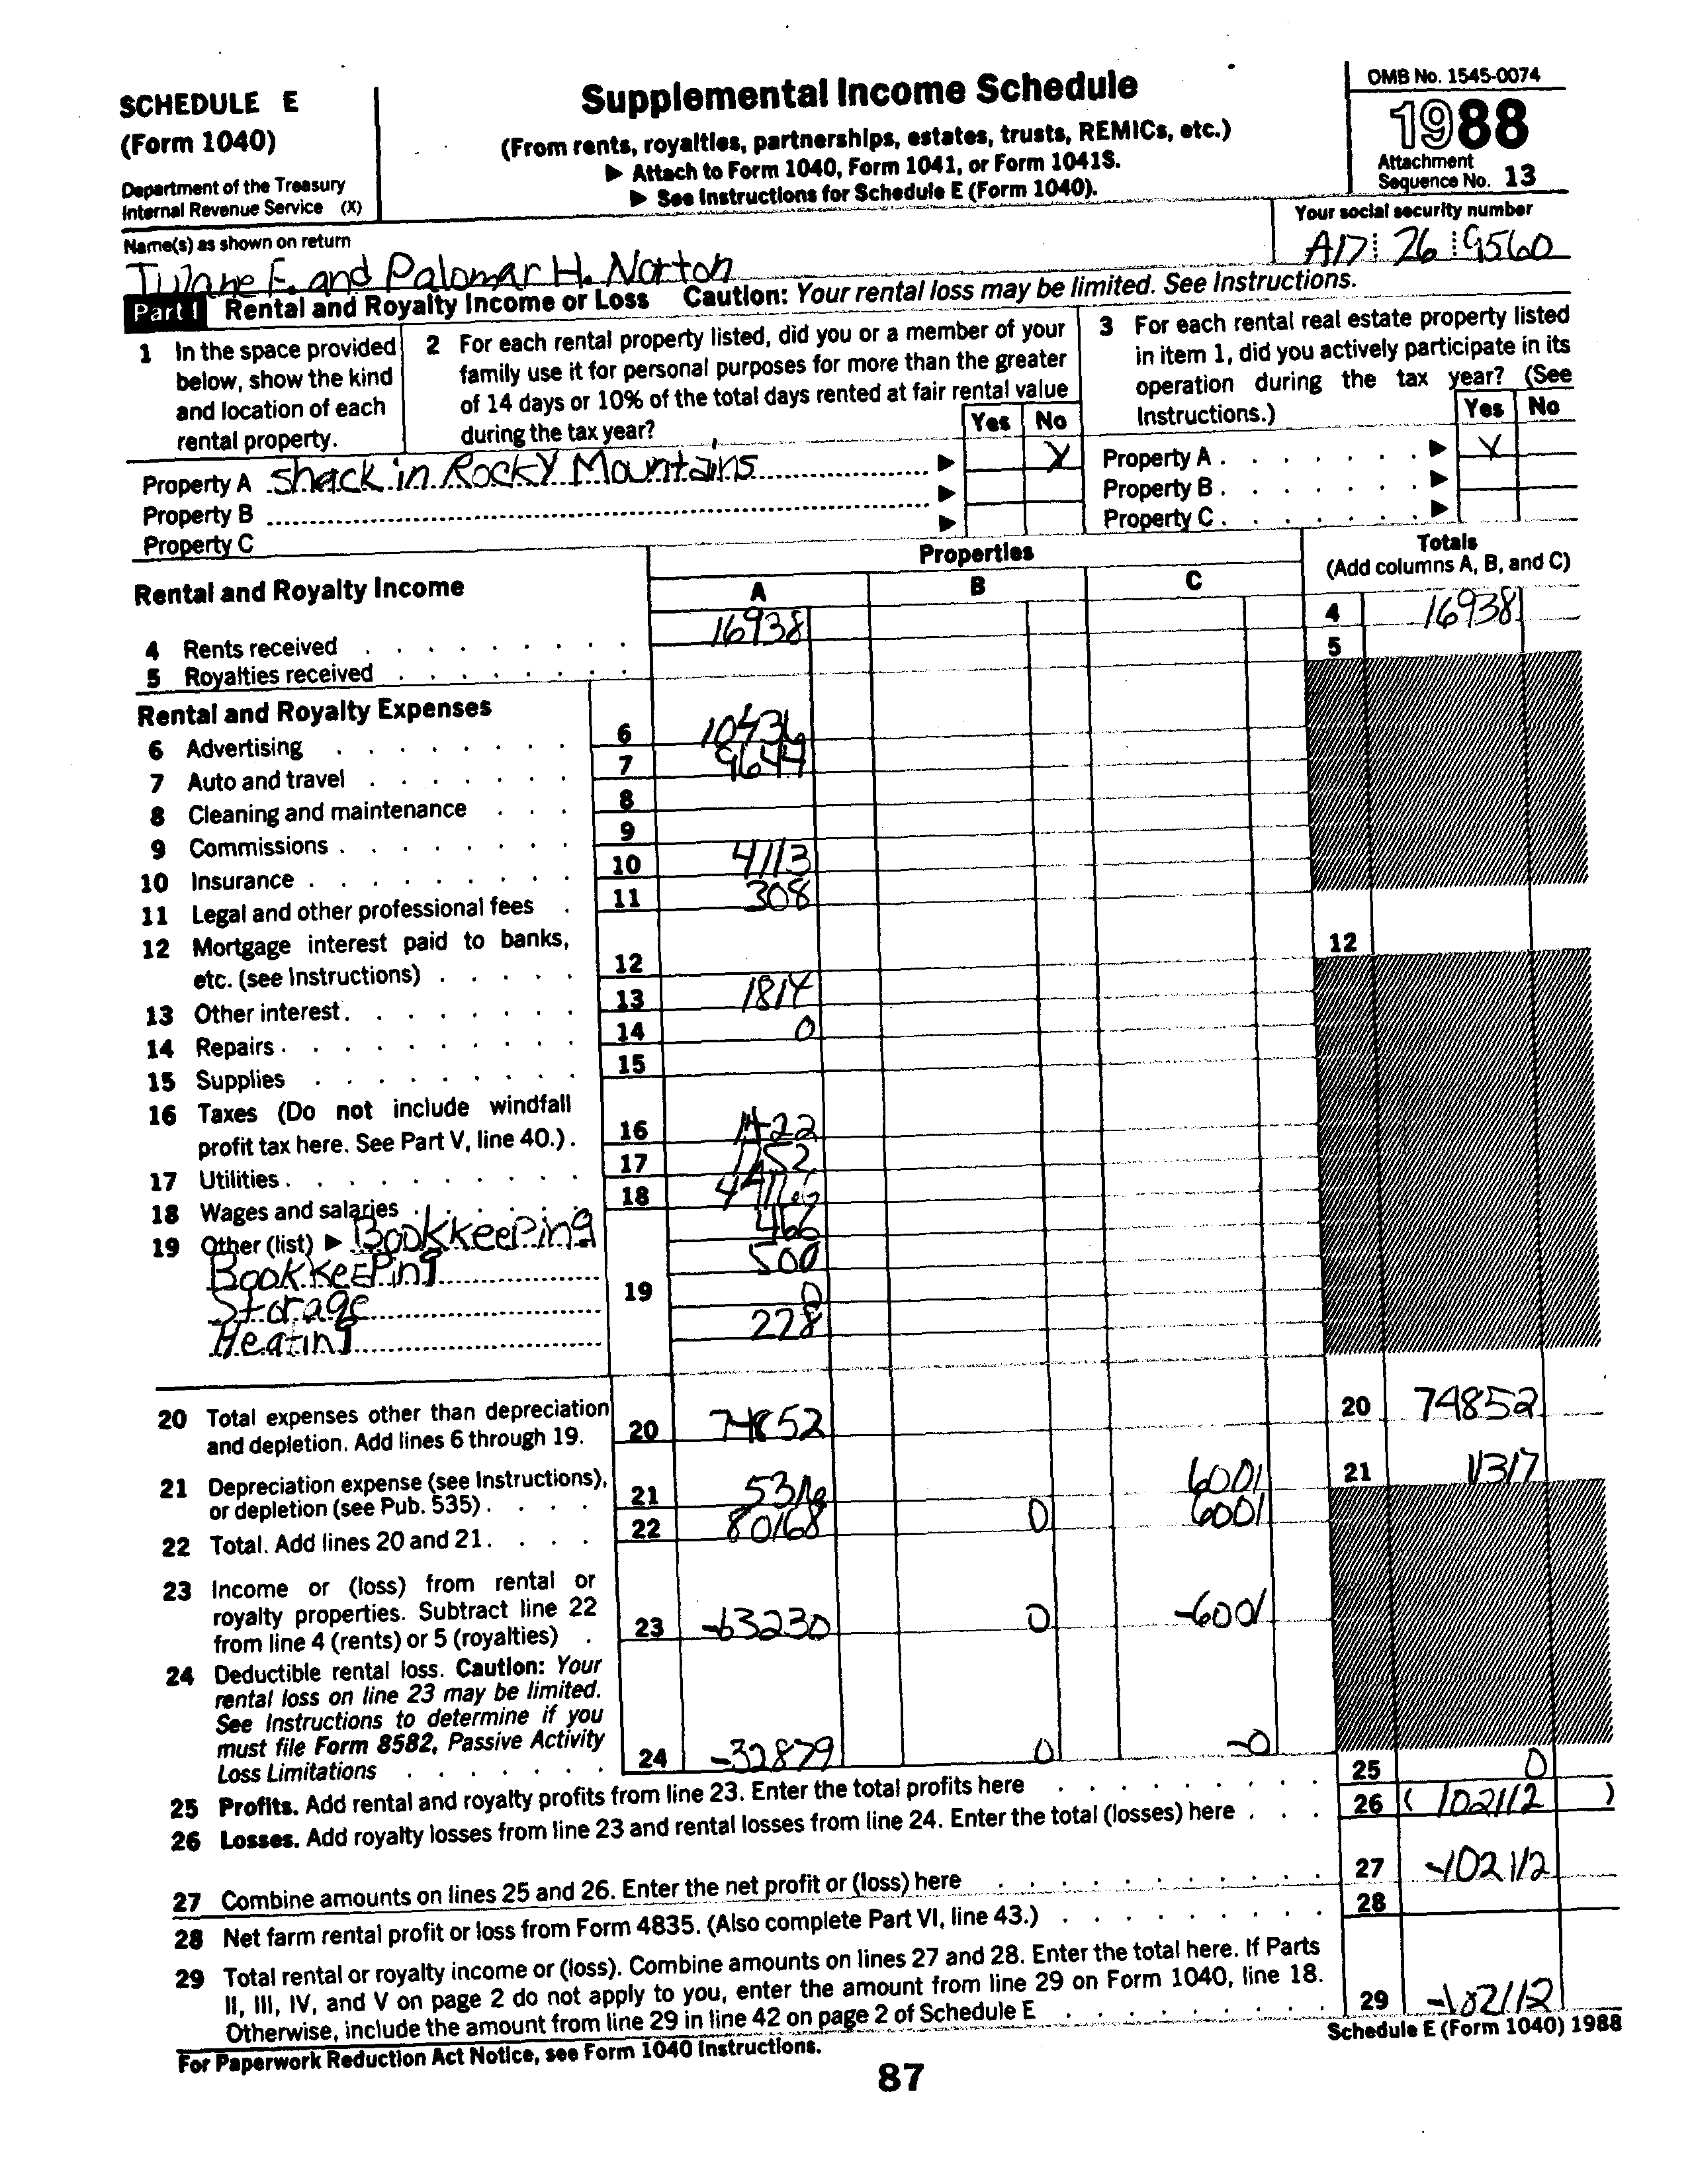 SCHEDULE E
(Form 1040)
Department of the Treasury
Internal Revenue Service (X)
Supplemental Income Schedule
(From rents, royalties, partnerships, estates, trusts, REMICs, etc.)
▶ Attach to Form 1040, Form 1041, or Form 1041S.
▶ See Instructions for Schedule E (Form 1040).
OMB No. 1545-0074
1988
Attachment
Sequence No. 13
Name(s) as shown on return
Tulane F. and Palomar H. Norton
Your social security number
A17 26 9560
Part I Rental and Royalty Income or Loss Caution: Your rental loss may be limited. See Instructions.
1 In the space provided
below, show the kind
and location of each
rental property.
2 For each rental property listed, did you or a member of your
family use it for personal purposes for more than the greater
of 14 days or 10% of the total days rented at fair rental value
during the tax year?
Yes No
3 For each rental real estate property listed
in item 1, did you actively participate in its
operation during the tax year? (See
Instructions.)
Yes No
Property A shack in Rocky Mountains ▶ X
Property B ▶
Property C ▶
Property A ▶ X
Property B ▶
Property C ▶
Rental and Royalty Income
Properties
A B C
Totals
(Add columns A, B, and C)
4 Rents received 16938 4 16938
5 Royalties received 5
Rental and Royalty Expenses
6 Advertising 6 10436
7 Auto and travel 7 9644
8 Cleaning and maintenance 8
9 Commissions 9
10 Insurance 10 4113
11 Legal and other professional fees 11 308
12 Mortgage interest paid to banks,
etc. (see Instructions) 12 12
13 Other interest 13 1814
14 Repairs 14 0
15 Supplies 15
16 Taxes (Do not include windfall
profit tax here. See Part V, line 40.) 16 1422
17 Utilities 17 1752
18 Wages and salaries 18
19 Other (list) ▶ Bookkeeping 466
Bookkeeping 500
Storage 19 0
Heating 228
20 Total expenses other than depreciation
and depletion. Add lines 6 through 19. 20 74852 20 74852
21 Depreciation expense (see Instructions),
or depletion (see Pub. 535) 21 5316 6001 21 11317
22 Total. Add lines 20 and 21. 22 80168 0 6001
23 Income or (loss) from rental or
royalty properties. Subtract line 22
from line 4 (rents) or 5 (royalties) 23 -63230 0 -6001
24 Deductible rental loss. Caution: Your
rental loss on line 23 may be limited.
See Instructions to determine if you
must file Form 8582, Passive Activity
Loss Limitations 24 -32879 0 -0
25 Profits. Add rental and royalty profits from line 23. Enter the total profits here 25 0
26 Losses. Add royalty losses from line 23 and rental losses from line 24. Enter the total (losses) here 26 ( 102112 )
27 Combine amounts on lines 25 and 26. Enter the net profit or (loss) here 27 -102112
28 Net farm rental profit or loss from Form 4835. (Also complete Part VI, line 43.) 28
29 Total rental or royalty income or (loss). Combine amounts on lines 27 and 28. Enter the total here. If Parts
II, III, IV, and V on page 2 do not apply to you, enter the amount from line 29 on Form 1040, line 18.
Otherwise, include the amount from line 29 in line 42 on page 2 of Schedule E 29 -102112
For Paperwork Reduction Act Notice, see Form 1040 Instructions.
Schedule E (Form 1040) 1988
87